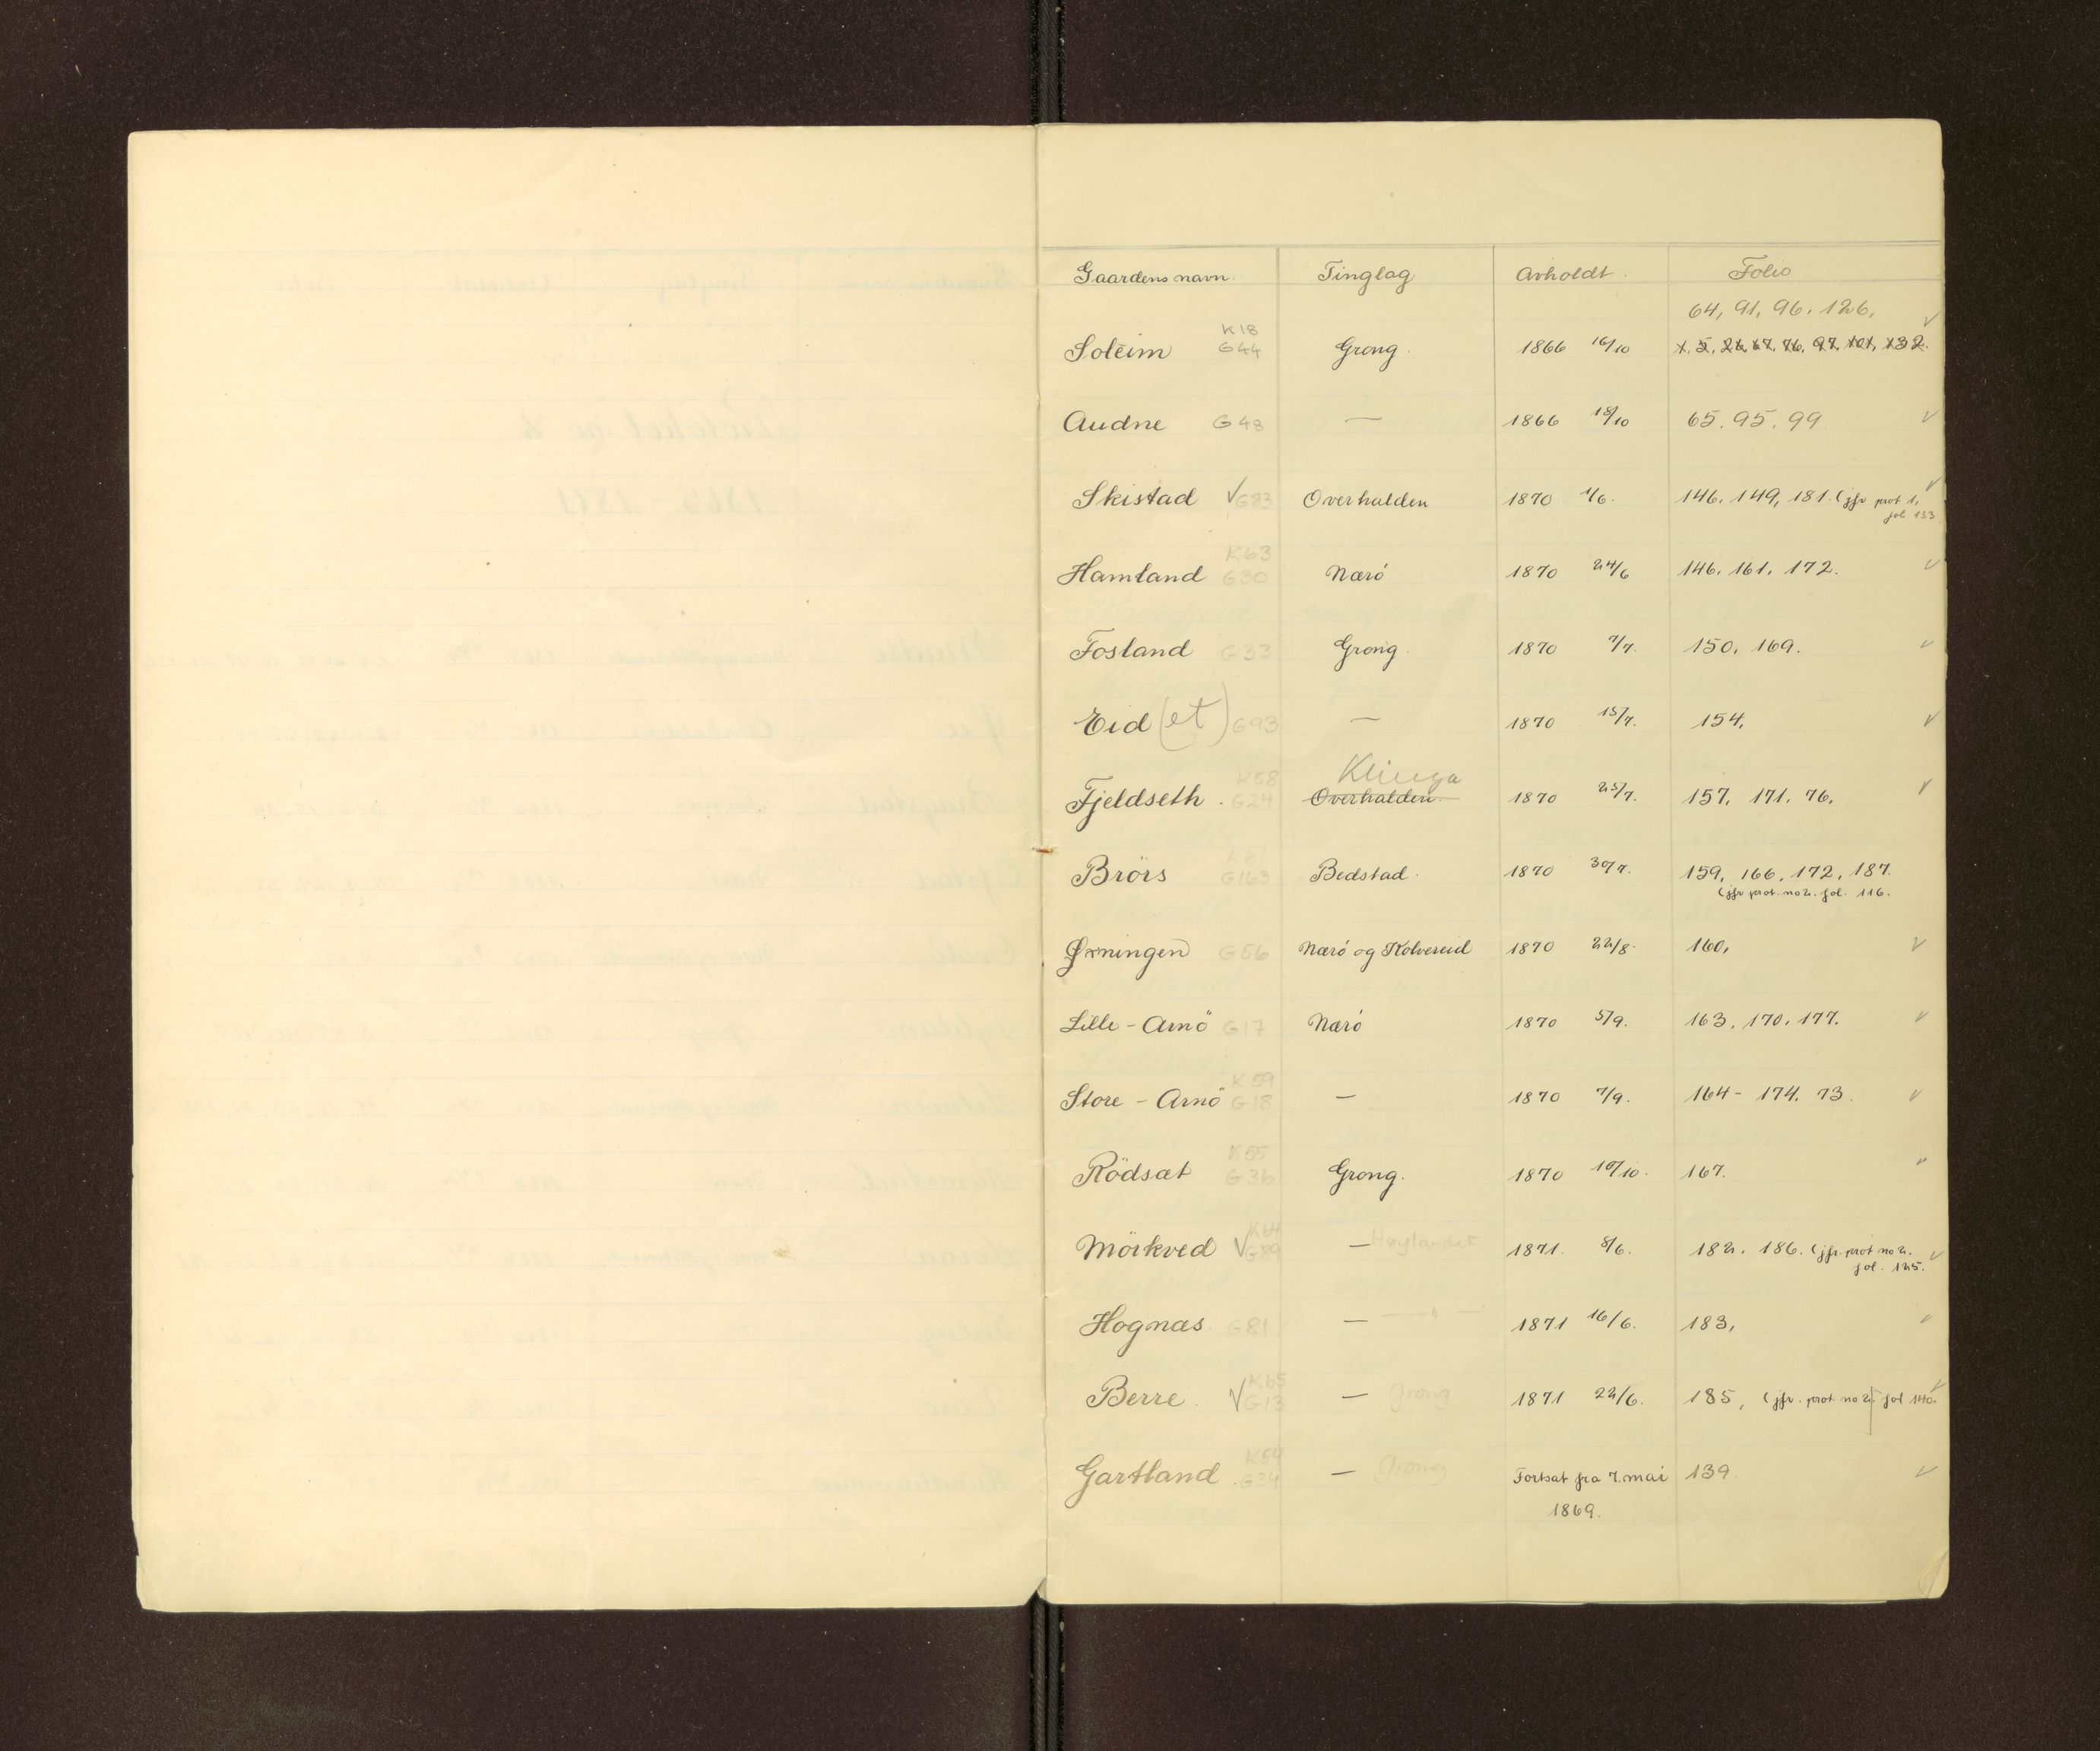 Gaardens navn. Tinglag Avholdt. Folio
64, 91, 96, 126,
K18
Soleim G44 Grong. 1866 16/10 1. 5, 26, 67, 76, 97, 101, 132.
Audne G48 — 1866 18/10 65. 95. 99
Skistad √ G83 Overhalden 1870 1/6. 146, 149, 181. (jfr prot 1,
fol 133
K63
Hamland G30 Nærö 1870 24/6 146. 161. 172.
Fosland G33 Grong. 1870 7/7. 150, 169.
Eid (et) G93 — 1870 15/7. 154.
K58 Klinga
Fjeldseth. G24 Overhalden. 1870 25/7. 157, 171, 76.
K61
Brörs G163 Bedstad. 1870 30/7. 159, 166, 172, 187.
(jfr prot no 2. fol. 116.
Øxningen G56 Nærö og Kolvereid 1870 22/8. 160,
Lille - Arnö G17 Nærö 1870 5/9. 163, 170. 177.
K59
Store - Arnö G18 — 1870 7/9. 164 - 174. 73.
K55
Rödsæt G36 Grong. 1870 10/10. 167.
K64
Mörkved √ G89 — Høylandet 1871. 8/6. 182. 186. (jfr. prot no 2.
fol. 125.
Hognæs. G81 — — " — 1871 16/6. 183,
K65
Berre. √ G13 — Grong 1871 22/6. 185, (jfr. prot no 2. fol 140.
K54
Gartland. G34 — Grong Fortsat fra 7. mai 139.
1869.